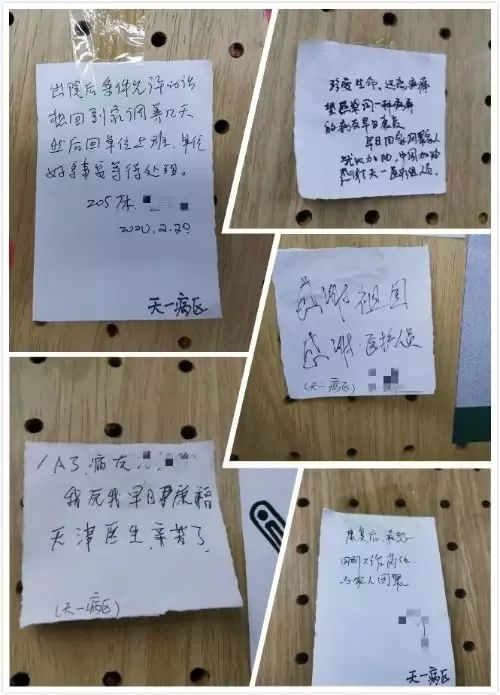 出院后条件允许的话
想回到家调养几天
然后回单位上班，单位
好多事要等待处理。
205床
2020.2.20
天一病区
珍爱生命、远离病毒
望感染同一种病毒
的病友早日康复
早日回家团聚家人
武汉加油，中国加油
感谢天一医护组人员。
感谢祖国
感谢·医护人员
（天一病区）
1A3.病友
祝早日康
天津医生辛苦了
（天一病区）
康复后最想
回到工作岗位
与家人团聚
天一病区